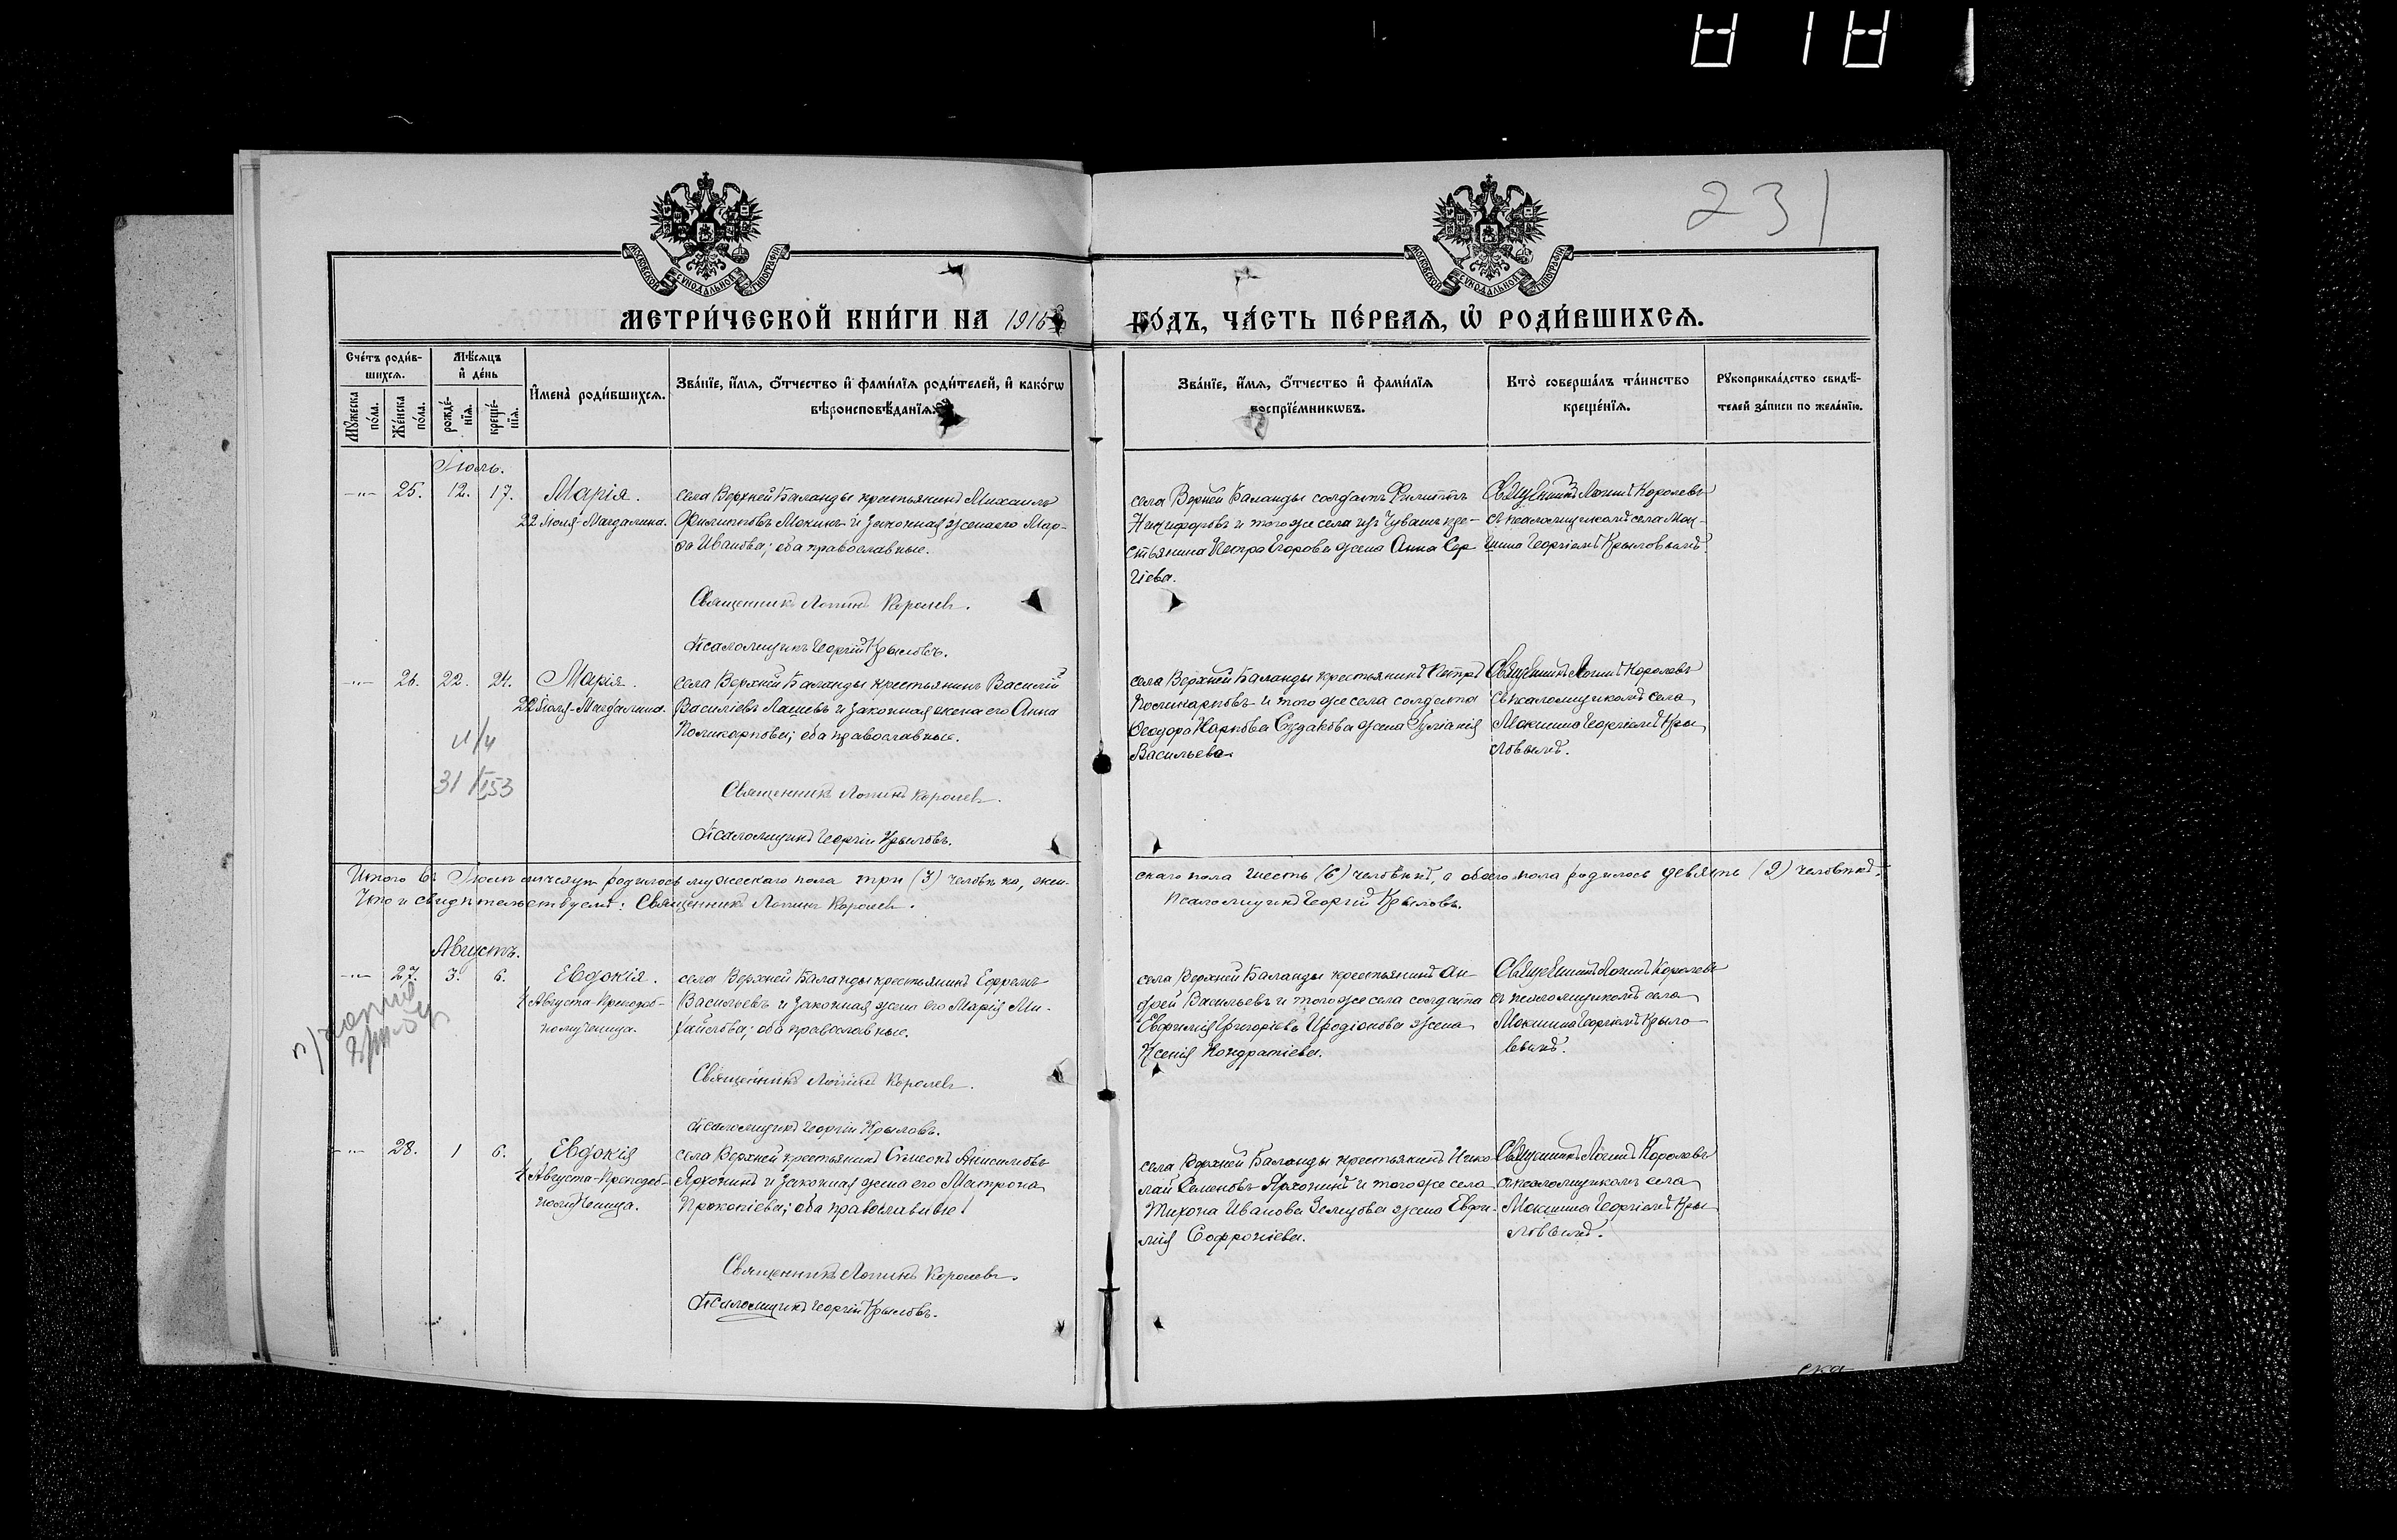 231
МОСКОВСКОЙ СѴНОДАЛЬНОЙ ТИПОГРАФІИ
МОСКОВСКОЙ СѴНОДАЛЬНОЙ ТИПОГРАФІИ
МЕТРИ́ЧЕСКОЙ КНИ́ГИ НА 1916
ГО́ДЪ, ЧА́СТЬ ПЕ́РВАѦ, Ѡ РОДИ́ВШИХСѦ.
Сче́тъ роди́в-
шихсѧ.
Мꙋ́жеска
по́ла.
Же́нска
по́ла.
Мѣ́сѧцъ
и҆ де́нь
рожде́-
нїѧ.
креще́-
нїѧ.
И҆мена̀ роди́вшихсѧ.
Зва́нїе, и҆́мѧ, о҆́тчество и҆ фами́лїѧ роди́телей, и҆ како́гѡ
вѣроисповѣ́данїѧ.
Зва́нїе, и҆́мѧ, о҆́тчество и҆ фами́лїѧ
воспрїе́мникѡвъ.
Кто̀ соверша́лъ та́инство
креще́нїѧ.
Рꙋкоприкла́дство свидѣ́-
телей за́писи по жела́нїю.
Іюль.
-"- 25. 12. 17. Марія.
22 Іюля-Магдалина.
села Верхней Баланды крестьянинъ Михаилъ
Филипповъ Мокинъ и законная жена его Мар-
ѳа Иванова; оба православные.
Священникъ Логинъ Королевъ.
Псаломщикъ Георгій Крыловъ.
села Верхней Баланды солдатъ Филиппъ
Никифоровъ и того же села изъ Чувашъ кре-
стьянина Петра Егорова жена Анна Сер
гіева.
Священникъ Логинъ Королевъ
съ псаломщикомъ села Мок-
шина Георгіемъ Крыловымъ.
-"- 26. 22. 24. Марія.
22 Іюля-Магдалина.
села Верхней Баланды крестьянинъ Василій
Василіевъ Лашевъ и законная жена его Анна
Поликарпова; оба православные.
31/I 53
Священникъ Логинъ Королевъ.
Псаломщикъ Георгій Крыловъ.
села Верхней Баланды крестьянинъ Петръ
Поликарповъ и того же села солдата
Ѳеодора Карпова Судакова жена Іуліанія
Васильева.
Священникъ Логинъ Королевъ
съ псаломщикомъ села
Мокшина Георгіемъ Кры
ловымъ.
Итого въ Іюлѣ мѣсяцѣ родилось мужескаго пола три (3) человѣка, жен-
скаго пола шесть (6) человѣкъ, а обоего пола родилось девять (9) человѣкъ.
Что и свидѣтельствуемъ: Священникъ Логинъ Королевъ.
Псаломщикъ Георгій Крыловъ.
Августъ.
-"- 27. 3. 6. Евдокія.
4 Августа-Преподоб-
номученица.
села Верхней Баланды крестьянинъ Ефремъ
Васильевъ и законная жена его Марія Ми-
хайлова; оба православные.
Священникъ Логинъ Королевъ.
Псаломщикъ Георгій Крыловъ.
села Верхней Баланды крестьянинъ Ан-
дрей Васильевъ и того же села солдата
Евфимія Григоріева Иродіонова жена
Ксенія Кондратіева.
Священникъ Логинъ Королевъ
съ псаломщикомъ села
Мокшина Георгіемъ Крыло
вымъ.
-"- 28. 1 6. Евдокія
4 Августа-Преподоб-
номученица.
села Верхней крестьянинъ Симеонъ Анисимовъ
Ярхонинъ и законная жена его Матрона
Прокопіева; оба православные
Священникъ Логинъ Королевъ.
Псаломщикъ Георгій Крыловъ.
села Верхней Баланды крестьянинъ Нико
лай Семеновъ Ярхонинъ и того же села
Тихона Иванова Земцова жена Евфи-
мія Софроніева.
Священникъ Логинъ Королевъ
съ псаломщикомъ села
Мокшина Георгіемъ Кры
ловымъ.